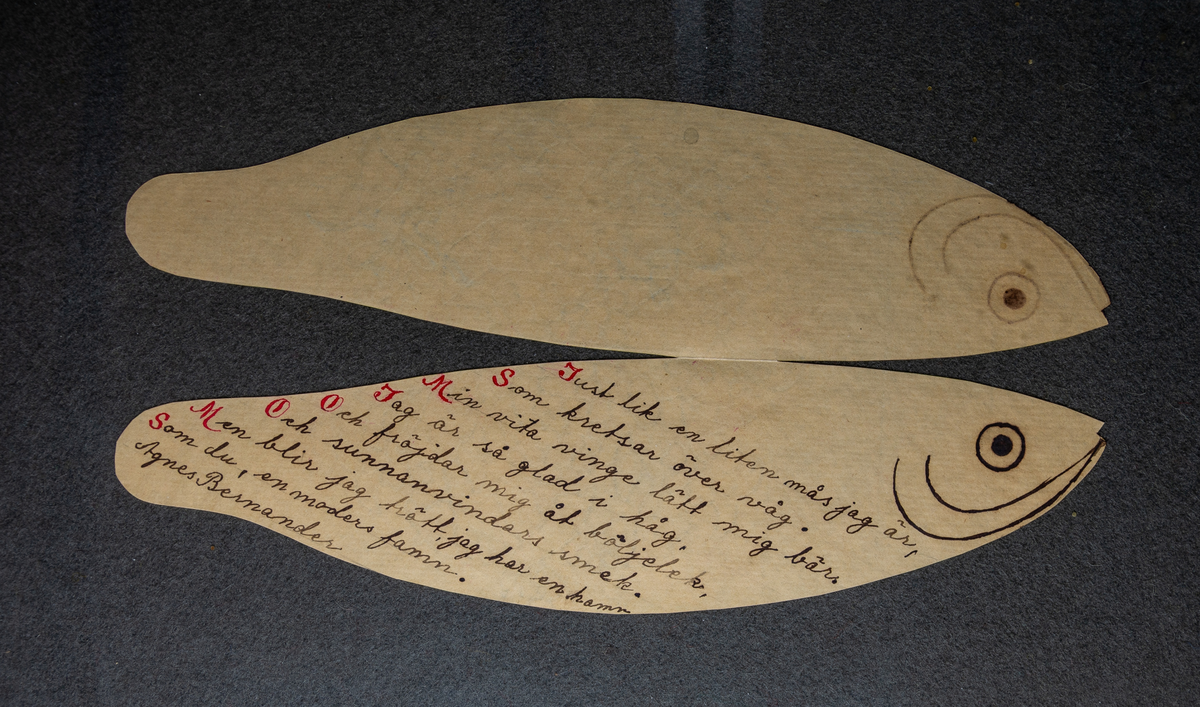 Just lik en liten mås jag är,
Som kretsar över våg.
Min vita vinge lätt mig bär.
Jag är så glad i håg,
Och fröjdar mig åt böljelek,
Och sunnanvindars smek.
Men blir jag trött, jag har en hamn
Som du, en moders famn.
Agnes Bernander